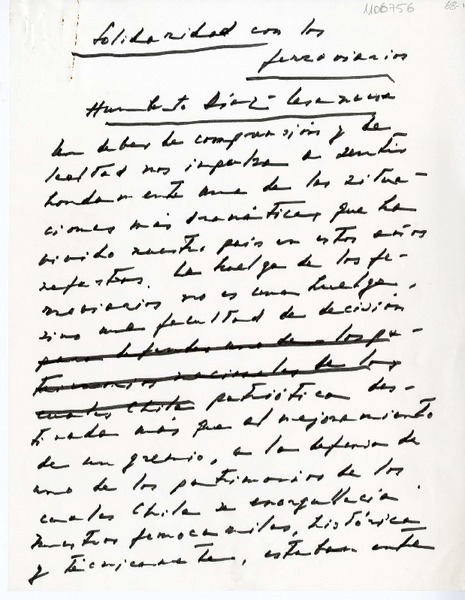 1106756
68-
Solidaridad con los
ferroviarios
Humberto Díaz Casanueva
Un deber de comprensión y de
lealtad nos impulsa a sentir
hondamente una de las situa-
ciones más dramáticas que ha
vivido nuestro país en estos años
nefastos. La huelga de los fe-
rroviarios no es una huelga,
sino una facultad de decisión
para defender uno de los pa-
trimonios nacionales de los
cuales Chile patriótica des-
tinada más que al mejoramiento
de un gremio, a la defensa de
uno de los patrimonios de los
cuales Chile se enorgullecía.
Nuestros ferrocarriles, histórica
y técnicamente, estaban entre